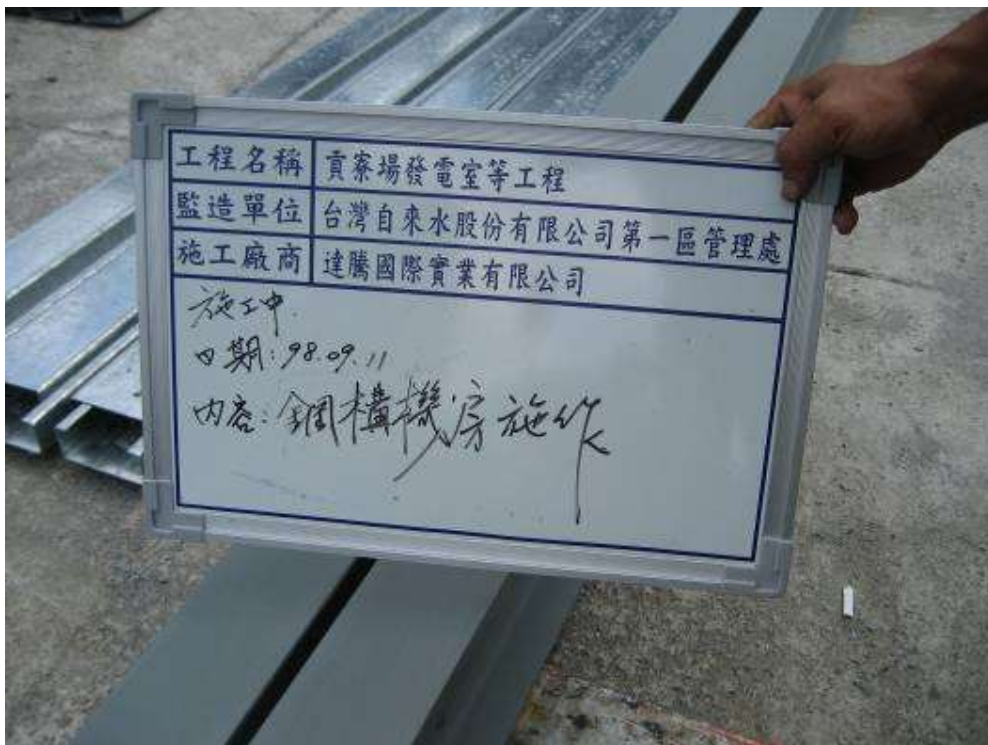 工程名稱 貢寮場發電室等工程
監造單位 台灣自來水股份有限公司第一區管理處
施工廠商 達騰國際實業有限公司
施工中.
日期:98.09.11
內容:鋼構機房施作